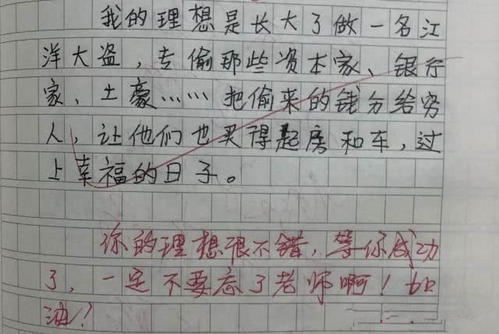 我的理想是长大了做一名江
洋大盗，专偷那些资本家、银行
家、土豪……把偷来的钱分给穷
人，让他们也买得起房和车，过
上幸福的日子。
你的理想很不错，等你成功
了，一定不要忘了老师啊！加
油！